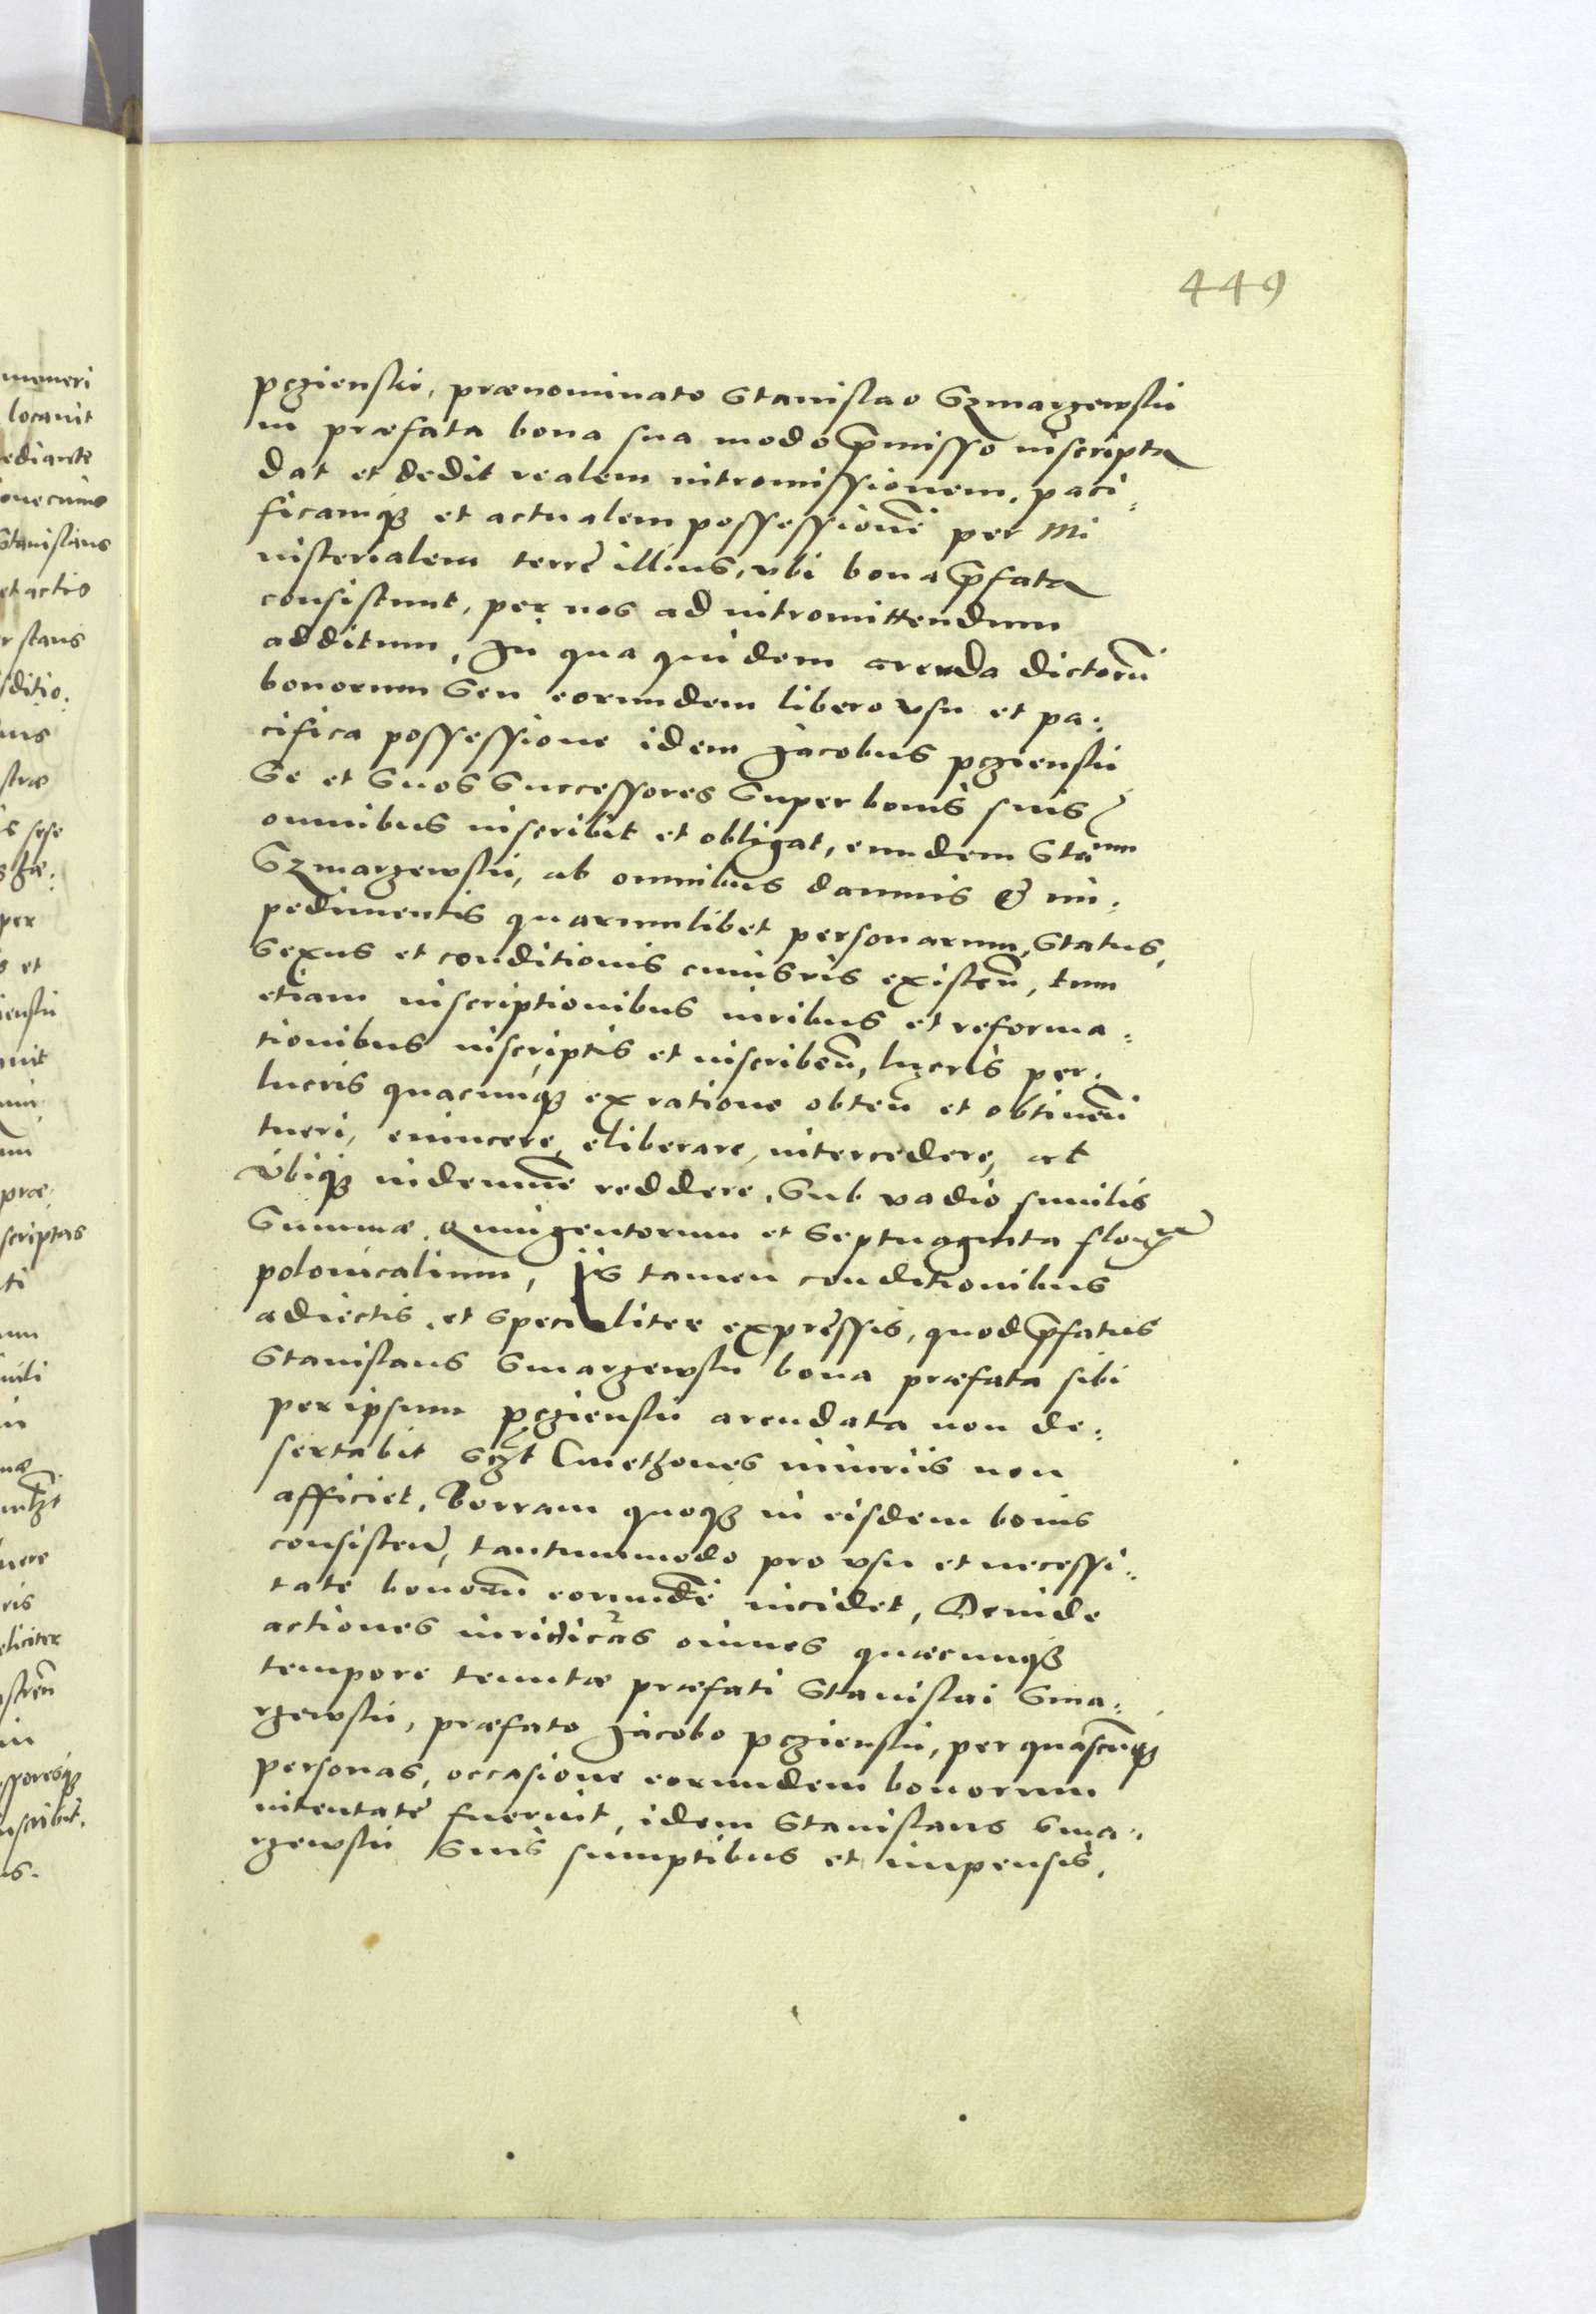 449
pczienskii, prænominato Stanislao Szmarzewskii
in præfata bona sua modo p̃misso inscripta
dat et dedit realem intromissionem, paci:
ficamq3 et actualem possessionẽ per Mi
nisterialem terrę illius, vbi bona p̃fata
consistunt, per nos ad intromittendum
additum, In qua quidem arenda dictorũ
bonorum seu eorundem libero vsu et pa:
cifica possessione idem Jacobus pczienskii
Se et suos Successores Super bonis suis
omnibus inscribit et obligat, eundem Stanum
Szmarzewskii, ab omnibus damnis & im:
pedimentis quarumlibet personarum, Status,
Sexus et conditionis cuiusvis existeñ, tum
etiam inscriptionibus iuribus et reforma:
tionibus inscriptis et inscribeñ, lucris per:
lucris quacunq3 ex ratione obteñ et obtineñ
tueri, euincere, eliberare, intercedere, at
Vbiq3 indemnẽ reddere, Sub vadio similis
Summæ Quingentorum et Septuaginta floř
polonicalium, Iis tamen conditionibus
adiectis, et specialiter expressis, quod p̃fatus
Stanislaus Smarzewskii bona præfata sibi
per ipsum pczienskii arendata non de:
sertabit Cmethones iniuriis non
afficiet, Borram quoq3 in eisdem bonis
consisteñ, tantummodo pro vsu et necessi:
tate bonorũ eorundẽ incidet, Deinde
actiones iuridicas omnes quæcunq3
tempore tenutæ præfati Stanislai Sma:
rzewskii, præfato Jacobo pczienskii, per quascũq3
personas, occasione eorundem bonorum
intentatę fuerint, idem Stanislaus Sma:
rzewskii Suis sumptibus et impensis,